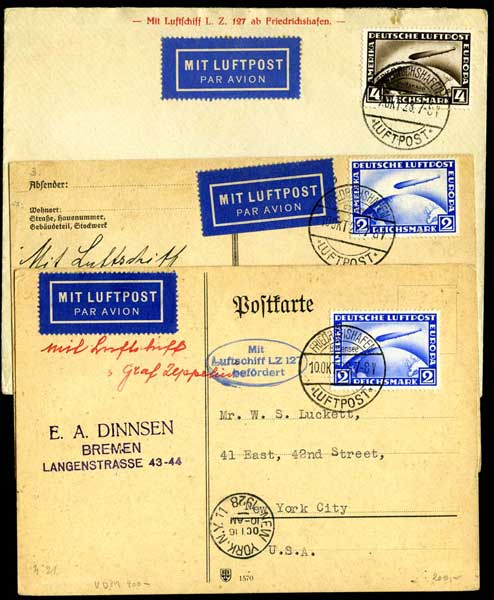 - Mit Luftschiff L. Z. 127 ab Friedrichshafen. -
MIT LUFTPOST
PAR AVION
DEUTSCHE LUFTPOST
AMERIKA
EUROPA
4 REICHSMARK 4
FRIEDRICHSHAFEN
OKT 28. 7-8 V
*LUFTPOST*
3.
Absender:
Wohnort:
Straße, Hausnummer,
Gebäudeteil, Stockwerk
Mit Luftschiff
MIT LUFTPOST
PAR AVION
DEUTSCHE LUFTPOST
AMERIKA
EUROPA
2 REICHSMARK 2
FRIEDRICHSHAFEN
LUFTPOST
MIT LUFTPOST
PAR AVION
Postkarte
mit Luftschiff
Graf Zeppelin
Mit
Luftschiff LZ 127
befördert
DEUTSCHE LUFTPOST
AMERIKA
EUROPA
2 REICHSMARK 2
FRIEDRICHSHAFEN
10.OKT 7-8 V
*LUFTPOST*
E. A. DINNSEN
BREMEN
LANGENSTRASSE 43-44
Mr. W. S. Luckett,
41 East, 42nd Street,
New York City
U.S.A.
NEW YORK, N.Y. 11 1928
OCT 16
10-AM
1570
200,-